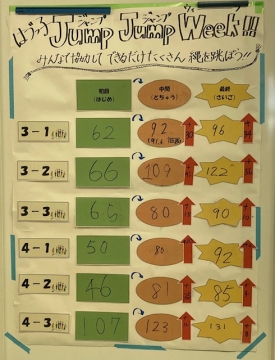 Jump Jump Week!!
ジャンプ ジャンプ
みんなで協力して できるだけたくさん 縄を跳ぼう!!
初回 (はじめ) 中間 (とちゅう) 最終 (さいご)
3-1 62 92 96
3-2 66 109 122
3-3 65 80 90
4-1 50 80 92
4-2 46 81 85
4-3 107 123 131